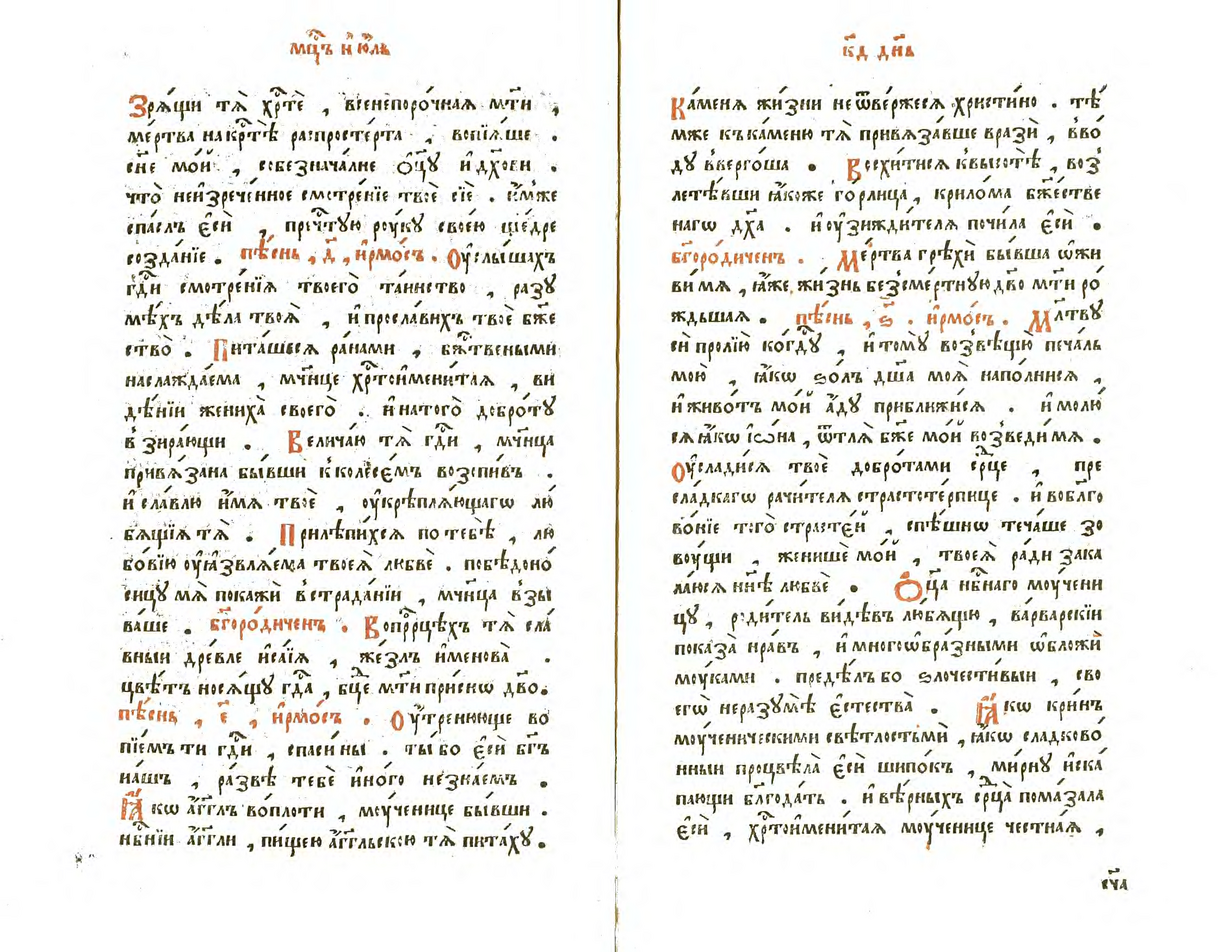 мцⷭ҇ъ и҆ ю҆́лⷧ҇ь
Зрѧ́щи тѧ̀ хрⷭ҇тѐ , всенепоро́чнаѧ мт҃и ,
ме́ртва на крⷭ҇тѣ̀ распросте́рта , вопїѧ́ше .
сн҃е мо́й , собезнача́лне ѻ҆ц҃у̀ и҆ дх҃ови .
что̀ неи҆зрече́нное смотре́нїе твоѐ сїѐ . и҆́мже
спа́слъ є҆сѝ , пречⷭ҇тую рꙋ́кꙋ своею̀ ще́дре
созда́нїе . пѣ́снь , д҃ , і҆рмо́съ . Оу҆слы́шахъ
гдⷭ҇и смотре́нїѧ твоего̀ та́инство , разꙋ
мѣ́хъ дѣла̀ твоѧ̀ , и҆ просла́вихъ твоѐ бж҃е
ство̀ . Пита́шесѧ ра́нами , бж҃твеными
наслажда́ема , мч҃нице хрⷭ҇тоимени́таѧ , ви
дѣ́нїи жениха̀ своего̀ . и҆ на того̀ добро́тꙋ
взира́ющи . Велича́ю тѧ̀ гдⷭ҇и , мч҃ница
привѧ́зана бы́вши к коле́сємъ возспи́въ .
и҆ сла́влю и҆́мѧ твоѐ , оу҆крѣплѧ́ющагѡ лю
бѧ́щїѧ тѧ̀ . Прилѣпи́хсѧ по тебѣ̀ , лю
бо́вїю оу҆ѧзвлѧ́ема твоеѧ̀ любвѐ . побѣдоно́
сицꙋ мѧ̀ покажѝ в страда́нїи , мч҃ница взы
ва́ше . бг҃оро́диченъ . Во прⷪ҇рцѣхъ тѧ̀ сла́
вныи дре́вле и҆са́їѧ , же́злъ и҆менова̀ .
цвѣ́тъ носѧ́щꙋ гдⷭ҇а , бц҃е мт҃и при́снѡ дв҃о .
пѣ́снь , є҃ , і҆рмо́съ . Оу҆́тренююще во
пїе́мъ ти гдⷭ҇и , спаси́ ны . ты́ бо є҆сѝ бг҃ъ
на́шъ , ра́звѣ тебѐ и҆но́го не зна́емъ .
Ꙗ҆́кѡ а҆́гг҃лъ во пло́ти , мꙋ́ченице бы́вши .
нбⷭ҇нїи а҆́гг҃ли , пи́щею а҆́гг҃льскою тѧ̀ пита́хꙋ .
к҃д дн҃ь
Ка́менѧ жи́зни не ѿве́ржесѧ христи́но . тѣ́
мже къ ка́меню тѧ̀ привѧза́вше вразѝ , в во́
дꙋ вверго́ша . Восхити́сѧ к высотѣ̀ , воз
летѣ́вши ꙗ҆́коже го́рлица , крило́ма бж҃естве
нагѡ дх҃а . и҆ оу҆ зижди́телѧ почи́ла є҆сѝ .
бг҃оро́диченъ . Ме́ртва грѣхѝ бы́вша ѡ҆жи
ви́ мѧ , ꙗ҆́же жи́знь безсме́ртнꙋю дв҃о мт҃и ро́
ждьшаѧ . пѣ́снь , ѕ҃ . і҆рмо́съ . Мл҃твꙋ
си пролїю̀ ко гдⷭ҇ꙋ , и҆ томꙋ̀ возвѣщꙋ̀ печа́ль
мою̀ , ꙗ҆́кѡ ѕо́лъ дш҃а моѧ̀ напо́лнисѧ ,
и҆ живо́тъ мо́й а҆́дꙋ прибли́жисѧ . и҆ молю́
сѧ ꙗ҆́кѡ і҆ѡ́на , ѿ тлѧ̀ бж҃е мо́й возведи́ мѧ .
Оу҆слади́сѧ твоѐ добро́тами срⷣце , пре
сла́дкагѡ рачи́телѧ страстоте́рпице . и҆ во бл҃го
во́нїе того̀ страсте́й , спѣ́шнѡ тече́ше зо
вꙋ́щи , женишѐ мо́й , твоеѧ̀ ра́ди зака
ла́юсѧ нн҃ѣ любвѐ . Ѻ҆ц҃а̀ нбⷭ҇наго мꙋ́чени
цꙋ , роди́тель ви́дѣвъ любѧ́щꙋю , ва́рварскїи
показа̀ нра́въ , и҆ многоѡ҆бра́зными ѡ҆бложѝ
мꙋ́ками . предѣ́лъ бо ѕлочести́выи , сво
егѡ̀ не разꙋмѣ̀ є҆стества̀ . Ꙗ҆́кѡ кри́нъ
мꙋ́ченическими свѣ́тлостьмѝ , ꙗ҆́кѡ сладково́
нныи процвѣла̀ є҆сѝ шипо́къ , ми́рнꙋ и҆ска́
пающи бл҃года́ть . и҆ вѣ́рныхъ срⷣца̀ пома́зала
є҆сѝ , хрⷭ҇тоимени́таѧ мꙋ́ченице честна́ѧ ,
сч҃а